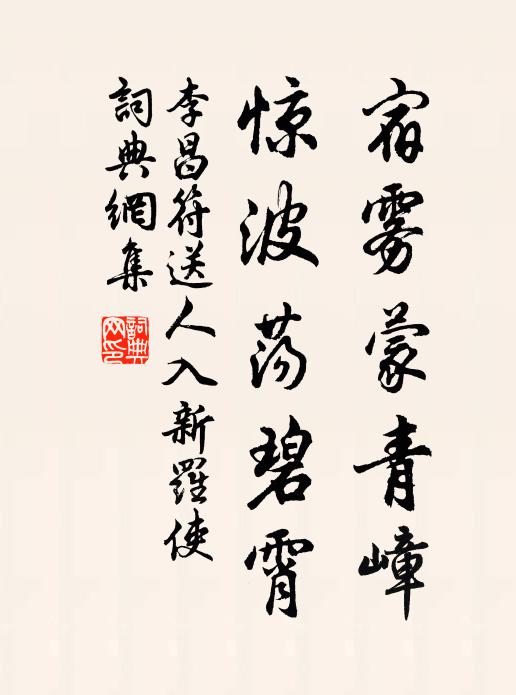 宿雾蒙青嶂
惊波荡碧霄
李昌符送人入新羅使
詞典網集
詞典网印